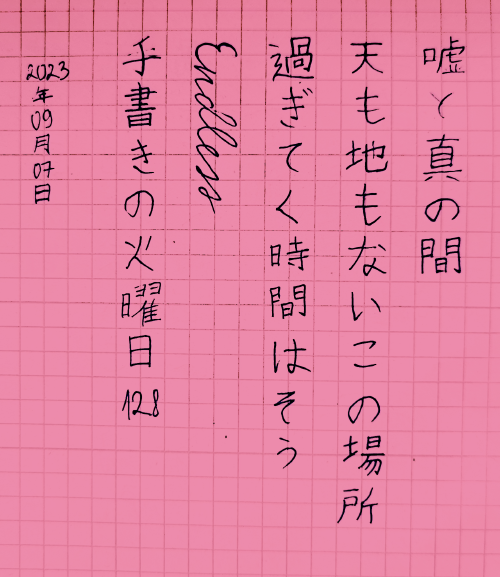 嘘と真の間
天も地もないこの場所
過ぎてく時間はそう
Endless
手書きの火曜日128
2023年09月07日